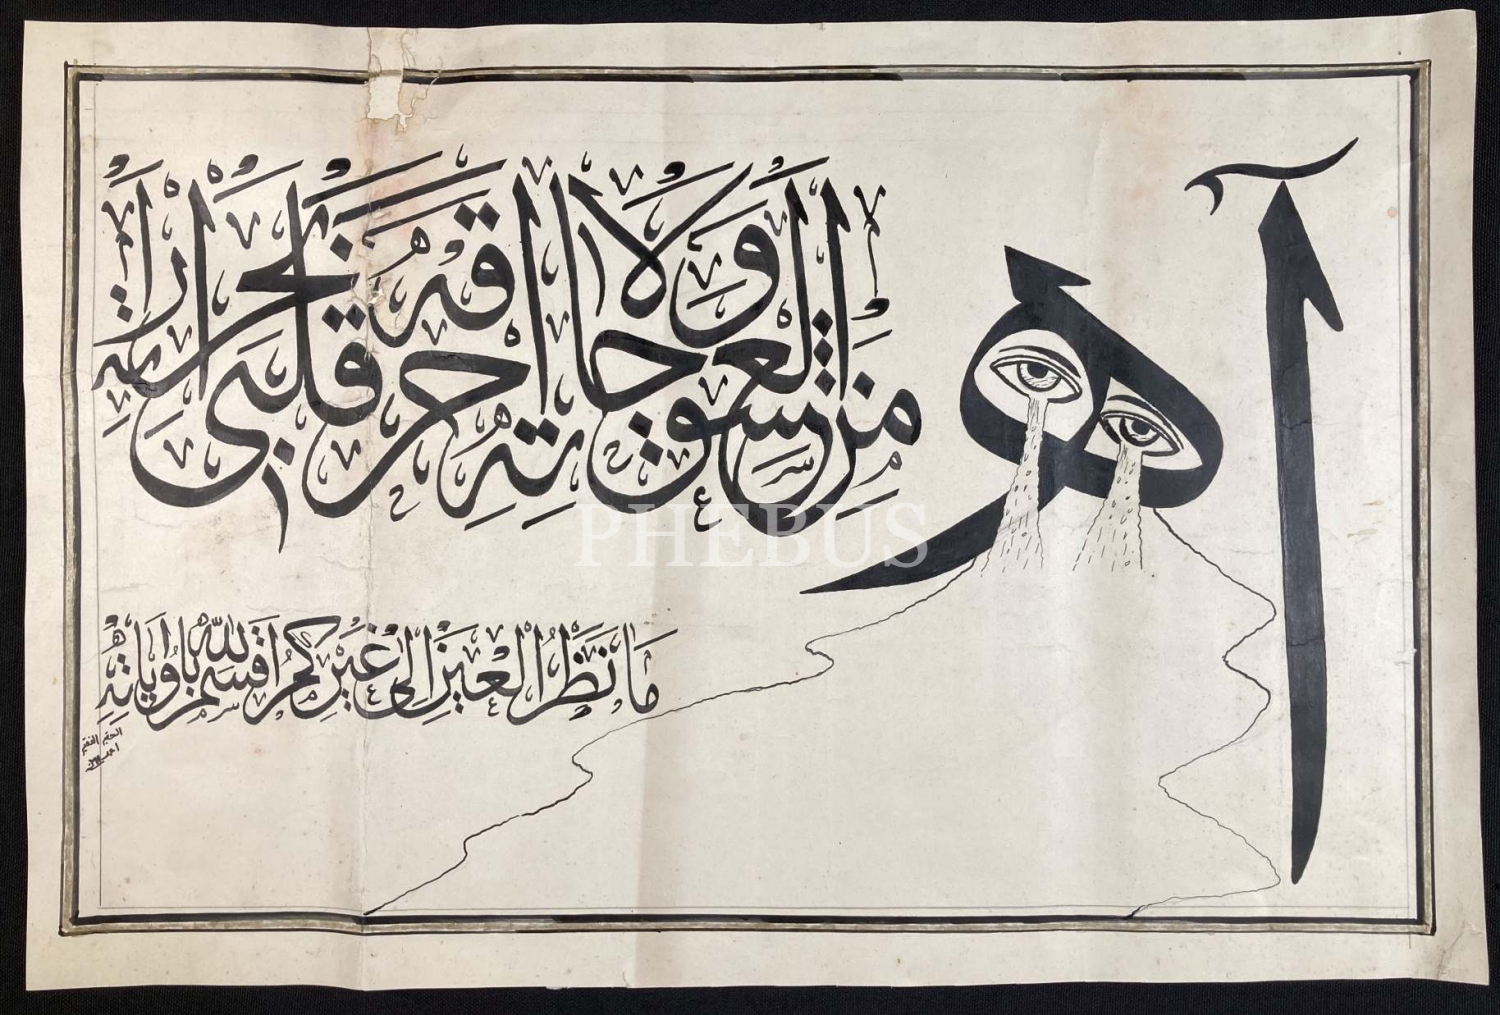 آه من العشق وحالاته
احرق قلبي بحراراته
ما نظر العين الى غيركم
اقسم بالله واياته
الحقير الفقير
PHEBUS